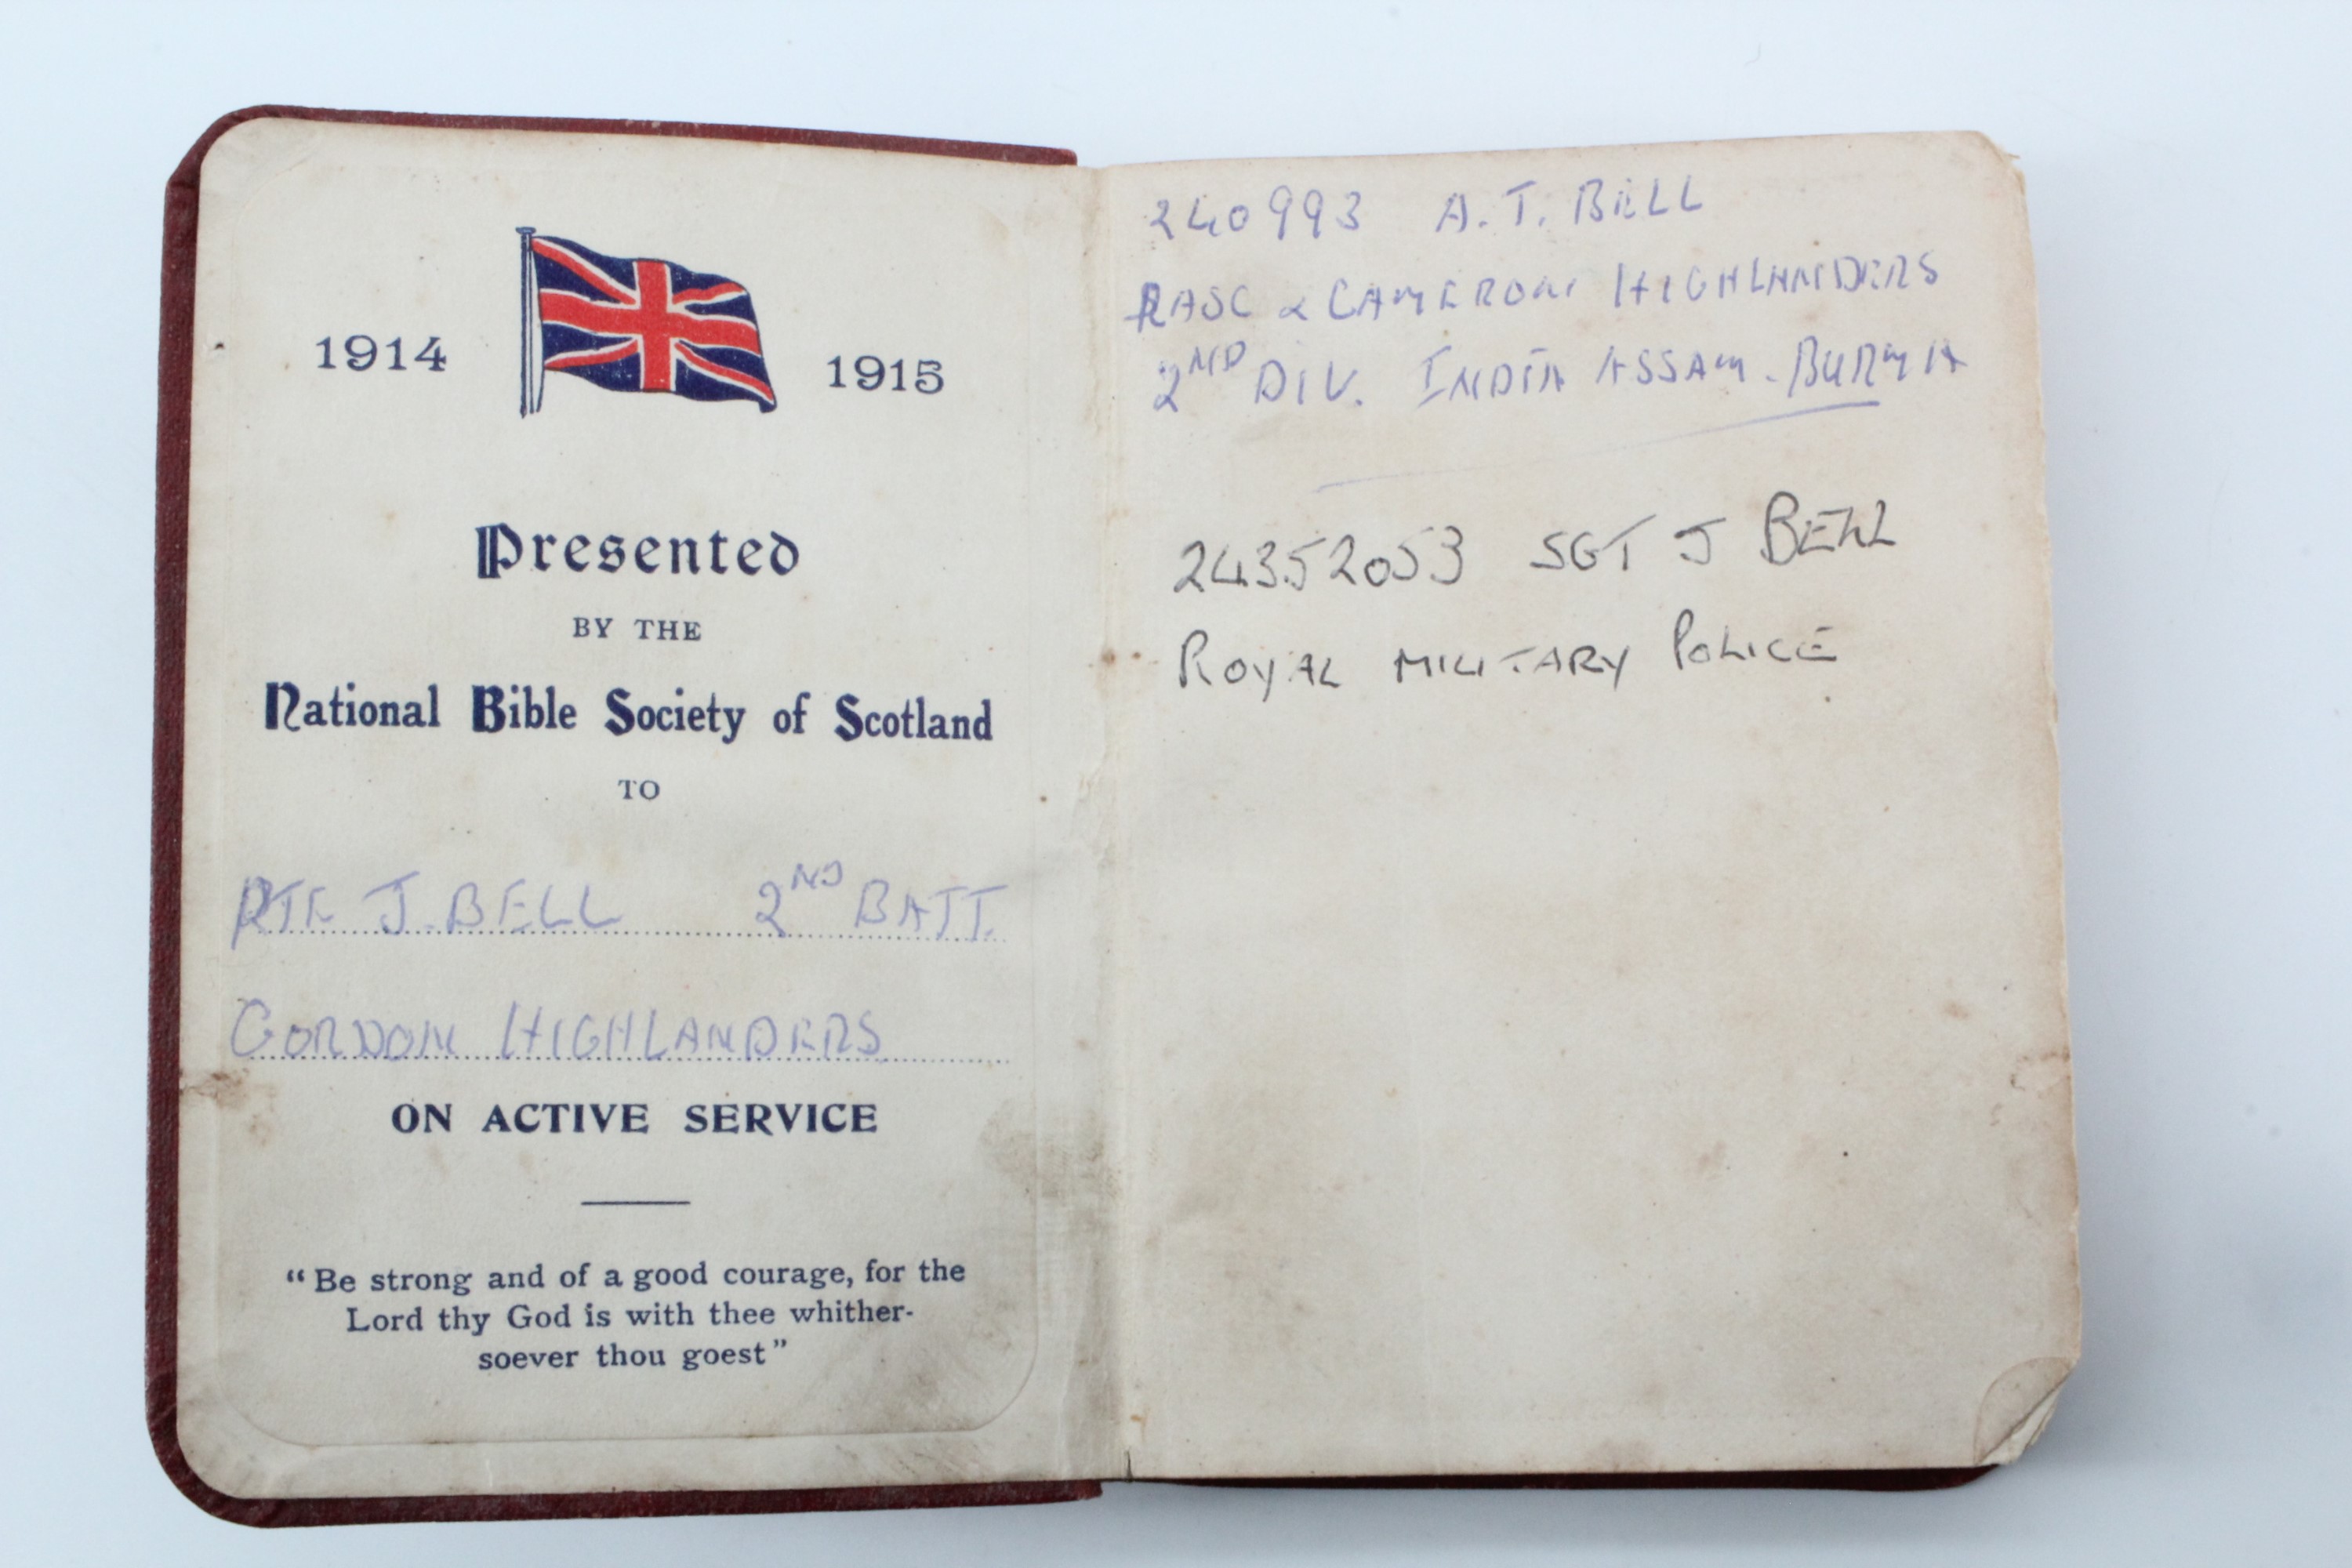 1914 1915
Presented
BY THE
National Bible Society of Scotland
TO
PTE J. BELL 2ND BATT.
GORDON HIGHLANDERS
ON ACTIVE SERVICE
“Be strong and of a good courage, for the
Lord thy God is with thee whither-
soever thou goest”
240993 A. T. BELL
RASC & CAMERON HIGHLANDERS
2ND DIV. INDIA ASSAM. BURMA
24352053 SGT J BELL
ROYAL MILITARY POLICE